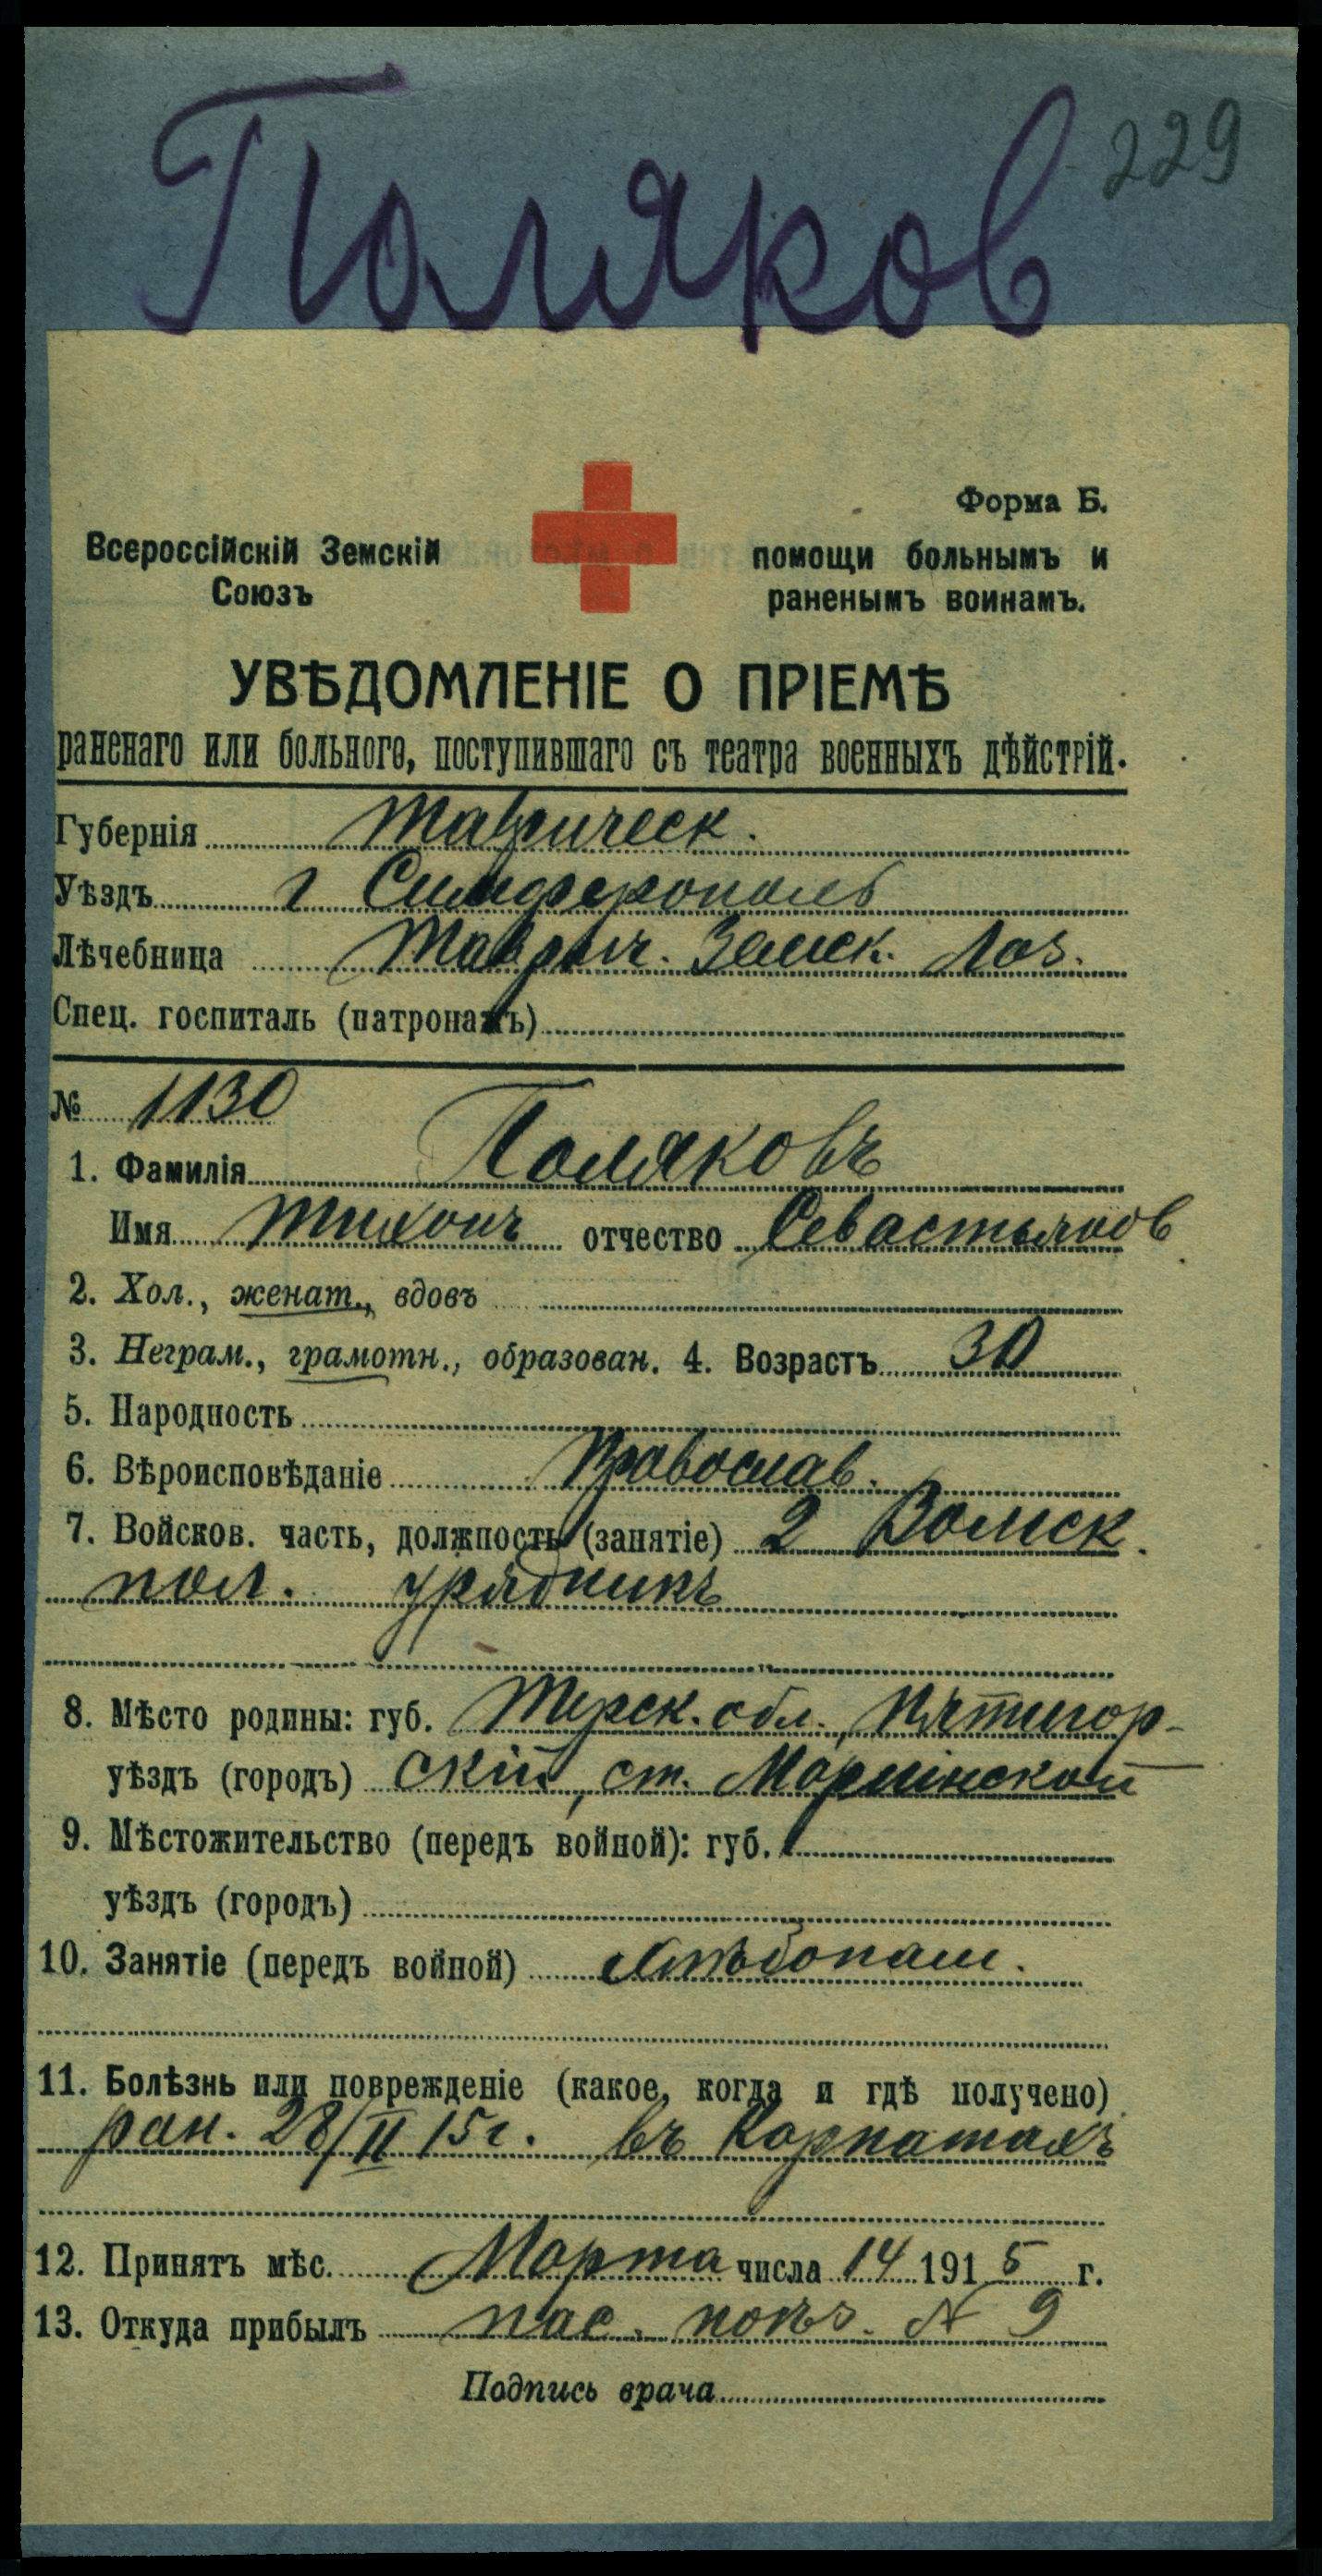 Поляков
229
Форма Б.
Всероссійскій Земскій помощи больнымъ и
Союзъ раненымъ воинамъ.
УВѢДОМЛЕНІЕ О ПРІЕМѢ
раненаго или больного, поступившаго съ театра военныхъ дѣйствій.
Губернія Таврическ.
Уѣздъ г Симферополь
Лѣчебница Таврич. Земск. Лаз.
Спец. госпиталь (патронажъ)
№ 1130
1. Фамилія Поляковъ
Имя Тихонъ отчество Севастьянов
2. Хол., женат., вдовъ
3. Неграм., грамотн., образован. 4. Возрастъ 30
5. Народность
6. Вѣроисповѣданіе Православ.
7. Войсков. часть, должность (занятіе) 2 Волгск.
пол. урядникъ
8. Мѣсто родины: губ. Терск. обл., Пятигор-
уѣздъ (городъ) скій, ст. Марьинской
9. Мѣстожительство (передъ войной): губ.
уѣздъ (городъ)
10. Занятіе (передъ войной) Хлѣбопаш.
11. Болѣзнь или поврежденіе (какое, когда и гдѣ получено)
ран. 28/II 15 г. въ Карпатахъ
12. Принятъ мѣс. Марта числа 14 1915 г.
13. Откуда прибылъ № 9
Подпись врача